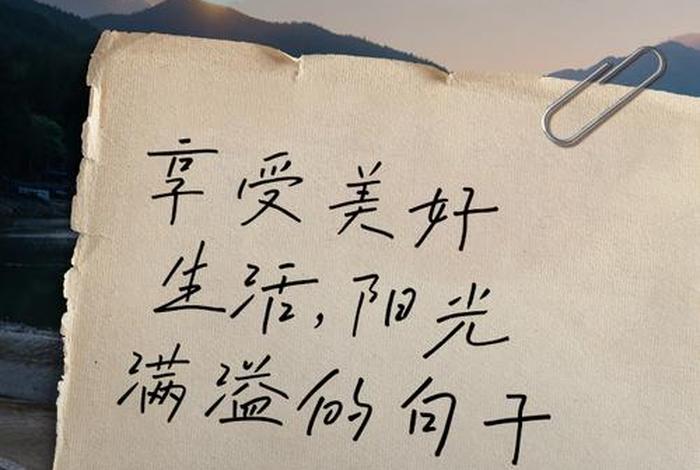 享受美好
生活,阳光
满溢的句子